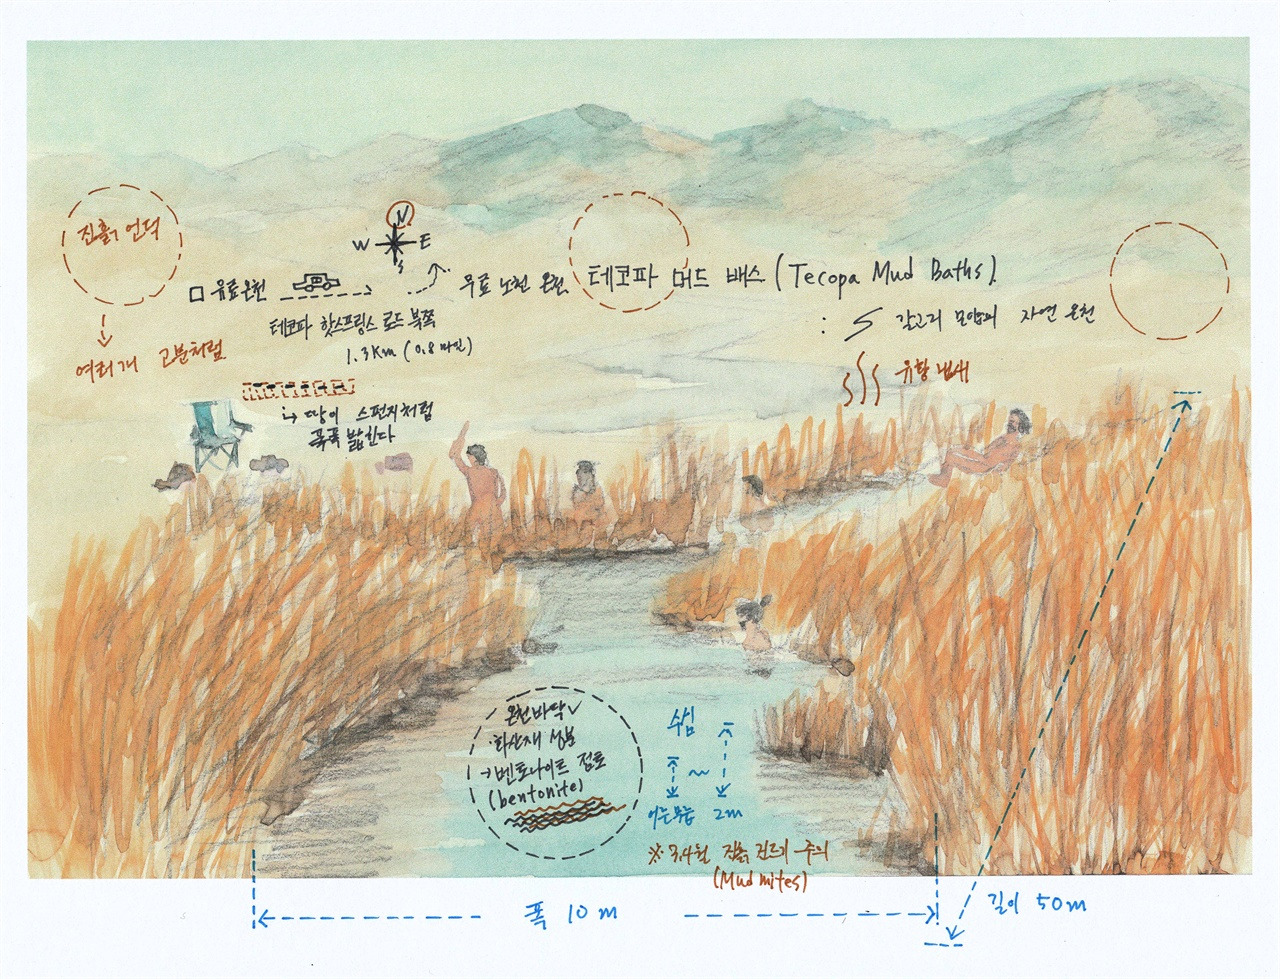 진흙 언덕
여러개 고분처럼
N
W E
S
유료온천
무료 노천 온천
테코파 머드 배스 (Tecopa Mud Baths)
테코파 핫스프링스 로드 북쪽
1.3km (0.8마일)
: 갈고리 모양의 자연 온천
유황 냄새
땅이 스펀지처럼
푹푹 밟힌다
온천바닥
화산재 성분
벤토나이트 점토
(bentonite)
수심
~
어른무릎 2m
※ 3,4월 진흙 진드기 주의
(Mud mites)
폭 10m
길이 50m